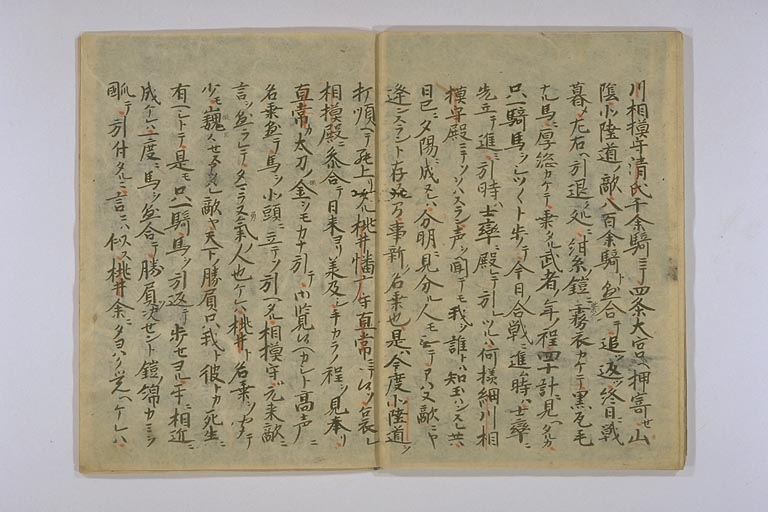 川相摸守清氏千余騎ニテ四条大宮ヘ押寄セ山
陰北陸道ノ敵八百余騎ト懸合テ追ツ返ツ終日ニ戦
暮メ左右ヘ引退ク処ニ紺糸ノ鎧ニ母衣カケテ黒瓦毛
ナル馬ニ厚総カケテ乗タル武者ノ年程四十計ニ見ヘタルカ
只一騎馬ヲシツシツト歩テ今日ノ合戦ニ進ム時ハ士卒ニ
先立テ進ミ引時ハ士卒ニ殿テ引ツルハ何様細川相
摸守殿ニテソヲハスラン声ヲ聞テモ我ヲ誰トハ知玉ハンスレ共
日已ニ夕陽ニ成ヌレハ分明ニ見分ル人モ無テアハヌ敵ニヤ
逢ンスラント存ル間事新シク名乗也是ハ今度北陸道ヲ
打順ヘテ罷上リ候ル桃井幡广守直常ニテ候ソ
相摸殿ニ参合テ日来ヨリ承及シ手カラノ程ヲ見奉リ
直常カ太刀ノ金ヲモカナ引テ御覧候ヘカシト高声ニ
名乗懸テ馬ヲ北頭ニ立テソ引ヘタル相摸守ハ元来敵ニ
言ヲ懸ラレテタマラヌ氣ノ人也ケレハ桃井ト名乗ヲ聞テ
少モ擬々セス敵ヤ天下ノ勝屓只我ト彼トカ死生ニ
有ヘシトテ是モ只一騎馬ヲ引返テ歩セヨル相近ニ
成ケレハ二度ニ馬ヲ懸合テ勝屓ヲ決セント鎧ノ錦カミヲ
�掴テ引付タルニ言ニハ似ス桃井余ニタヨハク覚ヘケレハ